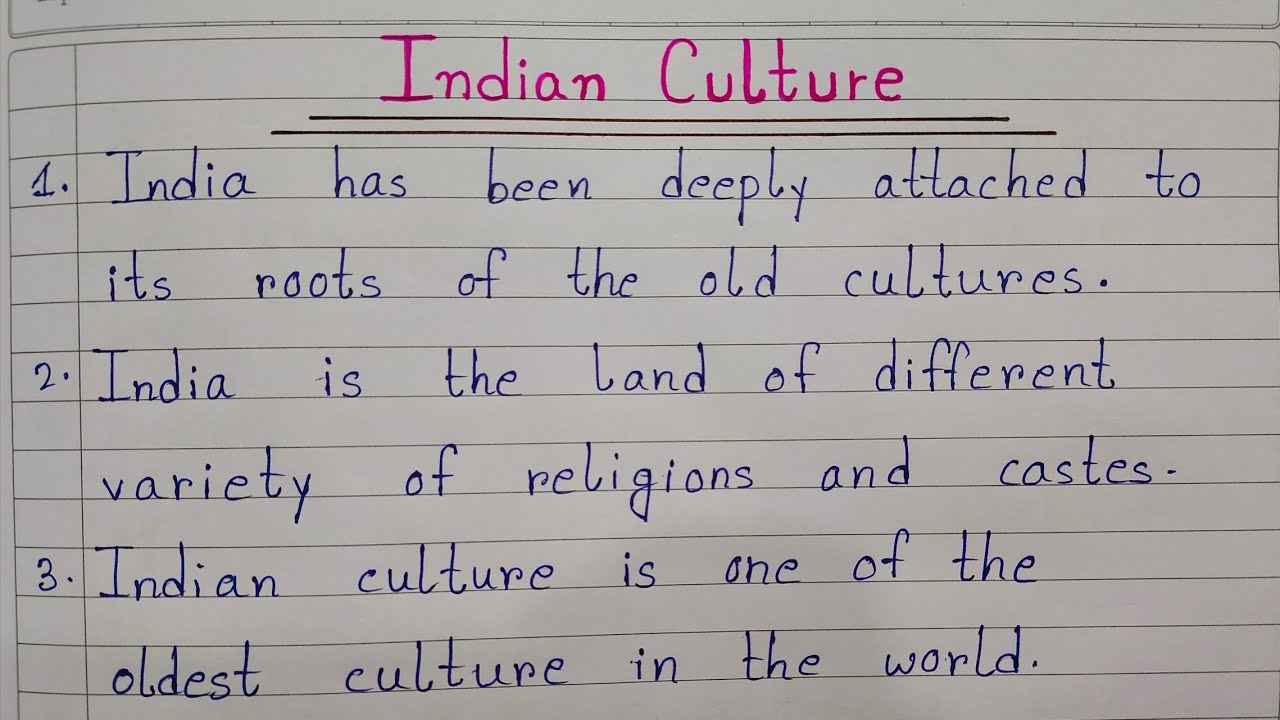 Indian Culture
1. India has been deeply attached to
its roots of the old cultures.
2. India is the land of different
variety of religions and castes.
3. Indian culture is one of the
oldest culture in the world.